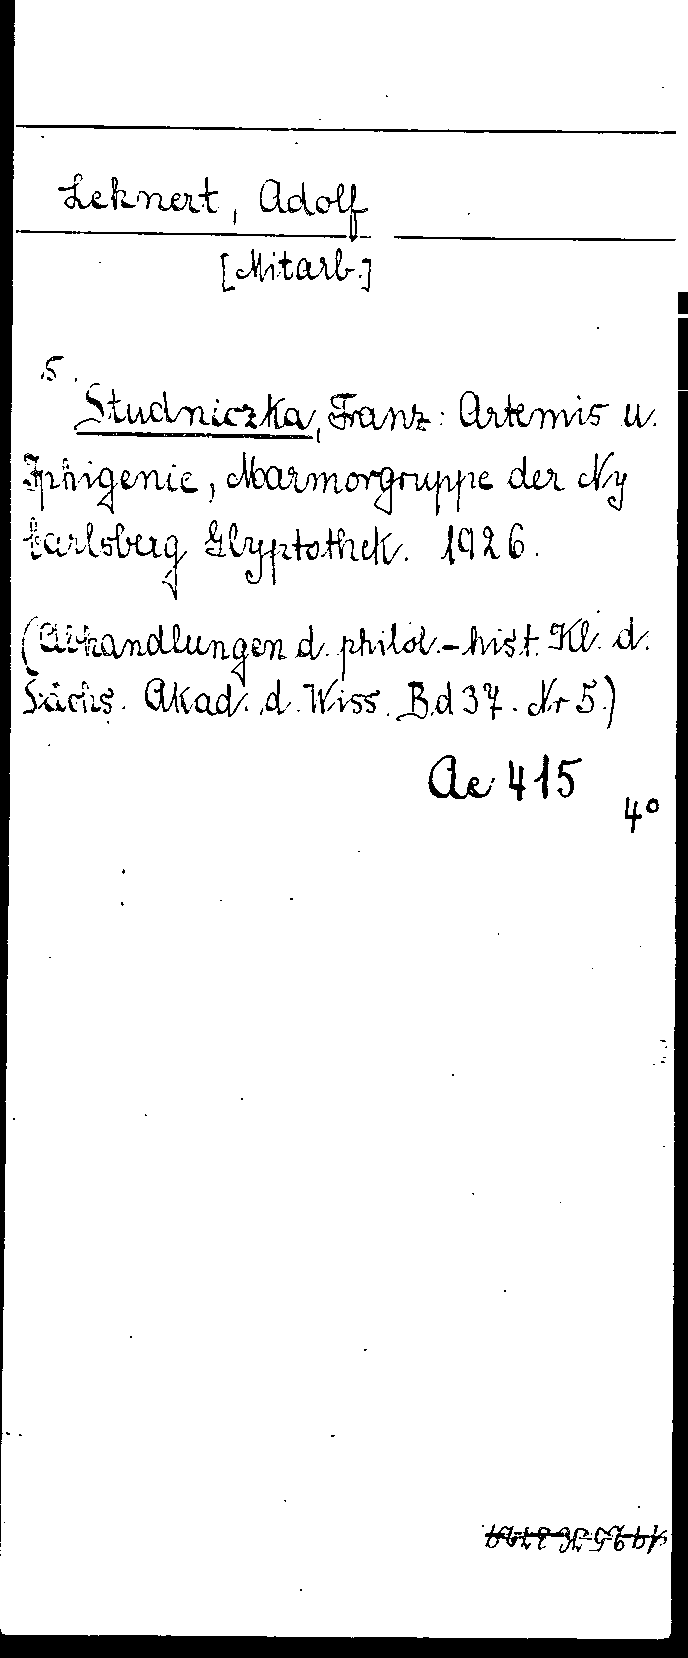 Lehnert, Adolf
[Mitarb.]
5.
Studniczka, Franz: Artemis u.
Iphigenie, Marmorgruppe der Ny
Carlsberg Glyptothek. 1926.
(Abhandlungen d. philol.-hist. Kl. d.
Sächs. Akad. d. Wiss. Bd 37. Nr 5.)
Ae 415
4°